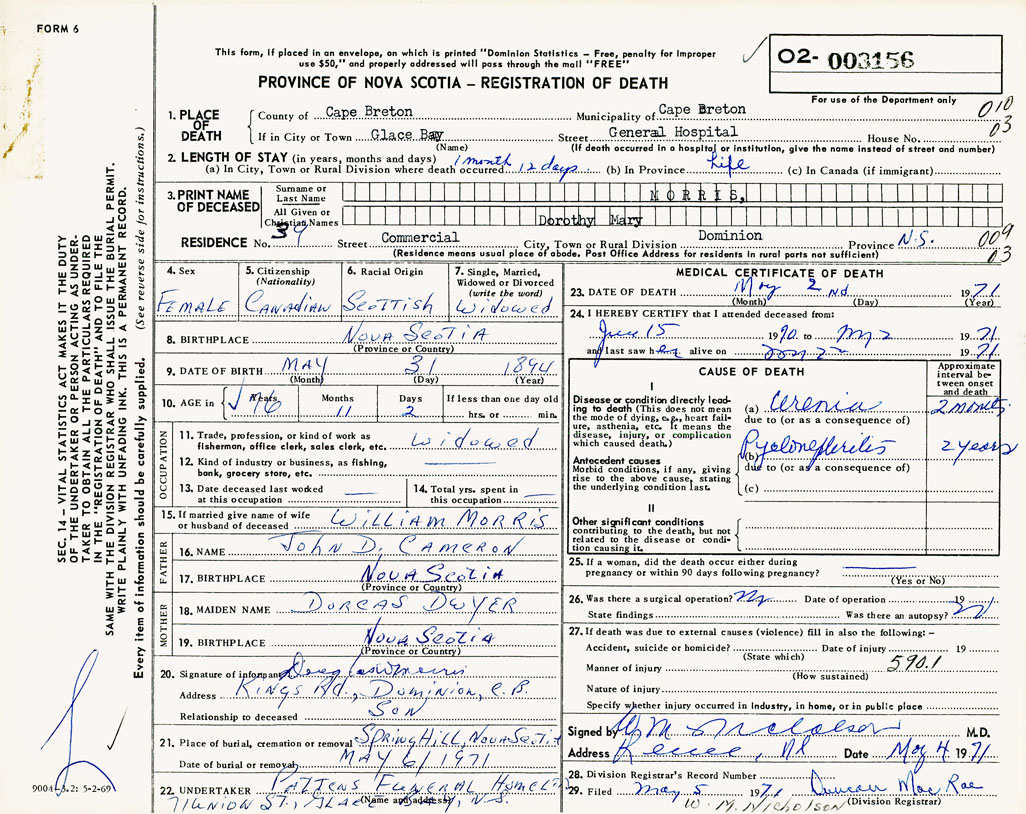 FORM 6
This form, if placed in an envelope, on which is printed "Dominion Statistics – Free, penalty for improper
use $50," and properly addressed will pass through the mail "FREE"
O2- 003156
PROVINCE OF NOVA SCOTIA – REGISTRATION OF DEATH
For use of the Department only
010
03
1. PLACE OF DEATH
County of Cape Breton Municipality of Cape Breton
If in City or Town Glace Bay Street General Hospital House No.
(Name) (If death occurred in a hospital or institution, give the name instead of street and number)
2. LENGTH OF STAY (in years, months and days) 1 month Life
(a) In City, Town or Rural Division where death occurred 12 days (b) In Province (c) In Canada (if immigrant)
3. PRINT NAME OF DECEASED
Surname or Last Name MORRIS,
All Given or Christian Names Dorothy Mary
RESIDENCE No. 39 Street Commercial City, Town or Rural Division Dominion Province N.S.
009
03
(Residence means usual place of abode. Post Office Address for residents in rural parts not sufficient)
4. Sex
FEMALE
5. Citizenship (Nationality)
CANADIAN
6. Racial Origin
SCOTTISH
7. Single, Married, Widowed or Divorced (write the word)
WIDOWED
8. BIRTHPLACE NOVA SCOTIA
(Province or Country)
9. DATE OF BIRTH MAY 31 1894
(Month) (Day) (Year)
10. AGE in Years Months Days If less than one day old
76 11 2 hrs. or min.
OCCUPATION
11. Trade, profession, or kind of work as fisherman, office clerk, sales clerk, etc. WIDOWED
12. Kind of industry or business, as fishing, bank, grocery store, etc.
13. Date deceased last worked at this occupation
14. Total yrs. spent in this occupation
15. If married give name of wife or husband of deceased WILLIAM MORRIS
FATHER
16. NAME JOHN D. CAMERON
17. BIRTHPLACE NOVA SCOTIA
(Province or Country)
MOTHER
18. MAIDEN NAME DORCAS DWYER
19. BIRTHPLACE NOVA SCOTIA
(Province or Country)
20. Signature of informant
Address KINGS RD., DOMINION, C.B.
Relationship to deceased SON
21. Place of burial, cremation or removal SPRINGHILL, NOVA SCOTIA
Date of burial or removal MAY 6/1971
22. UNDERTAKER PATTENS FUNERAL HOME LTD
(Name and address)
71 UNION ST., GLACE BAY, N.S.
MEDICAL CERTIFICATE OF DEATH
23. DATE OF DEATH May 2nd 1971
(Month) (Day) (Year)
24. I HEREBY CERTIFY that I attended deceased from:
15 1970 to 2 1971
and last saw her alive on 1971
CAUSE OF DEATH
Approximate interval between onset and death
I
Disease or condition directly leading to death (This does not mean the mode of dying, e.g., heart failure, asthenia, etc. It means the disease, injury, or complication which caused death.)
(a) Uremia 2 months
due to (or as a consequence of)
Antecedent causes
Morbid conditions, if any, giving rise to the above cause, stating the underlying condition last.
(b) Pyelonephritis 2 years
due to (or as a consequence of)
(c)
II
Other significant conditions
contributing to the death, but not related to the disease or condition causing it.
25. If a woman, did the death occur either during
pregnancy or within 90 days following pregnancy?
(Yes or No)
26. Was there a surgical operation? Date of operation 19
State findings Was there an autopsy?
27. If death was due to external causes (violence) fill in also the following: –
Accident, suicide or homicide? Date of injury 19
(State which)
Manner of injury 590.1
(How sustained)
Nature of injury
Specify whether injury occurred in industry, in home, or in public place
Signed by W M Nicholson M.D.
Address Date May 4 1971
28. Division Registrar's Record Number
29. Filed May 5 1971 Duncan MacRae
(Division Registrar)
W. M. NICHOLSON
SEC. 14 – VITAL STATISTICS ACT MAKES IT THE DUTY
OF THE UNDERTAKER OR PERSON ACTING AS UNDER-
TAKER TO OBTAIN ALL THE PARTICULARS REQUIRED
IN THE "REGISTRATION OF DEATH" AND TO FILE THE
SAME WITH THE DIVISION REGISTRAR WHO SHALL ISSUE THE BURIAL PERMIT.
WRITE PLAINLY WITH UNFADING INK. THIS IS A PERMANENT RECORD.
Every item of information should be carefully supplied. (See reverse side for instructions.)
5-2-69